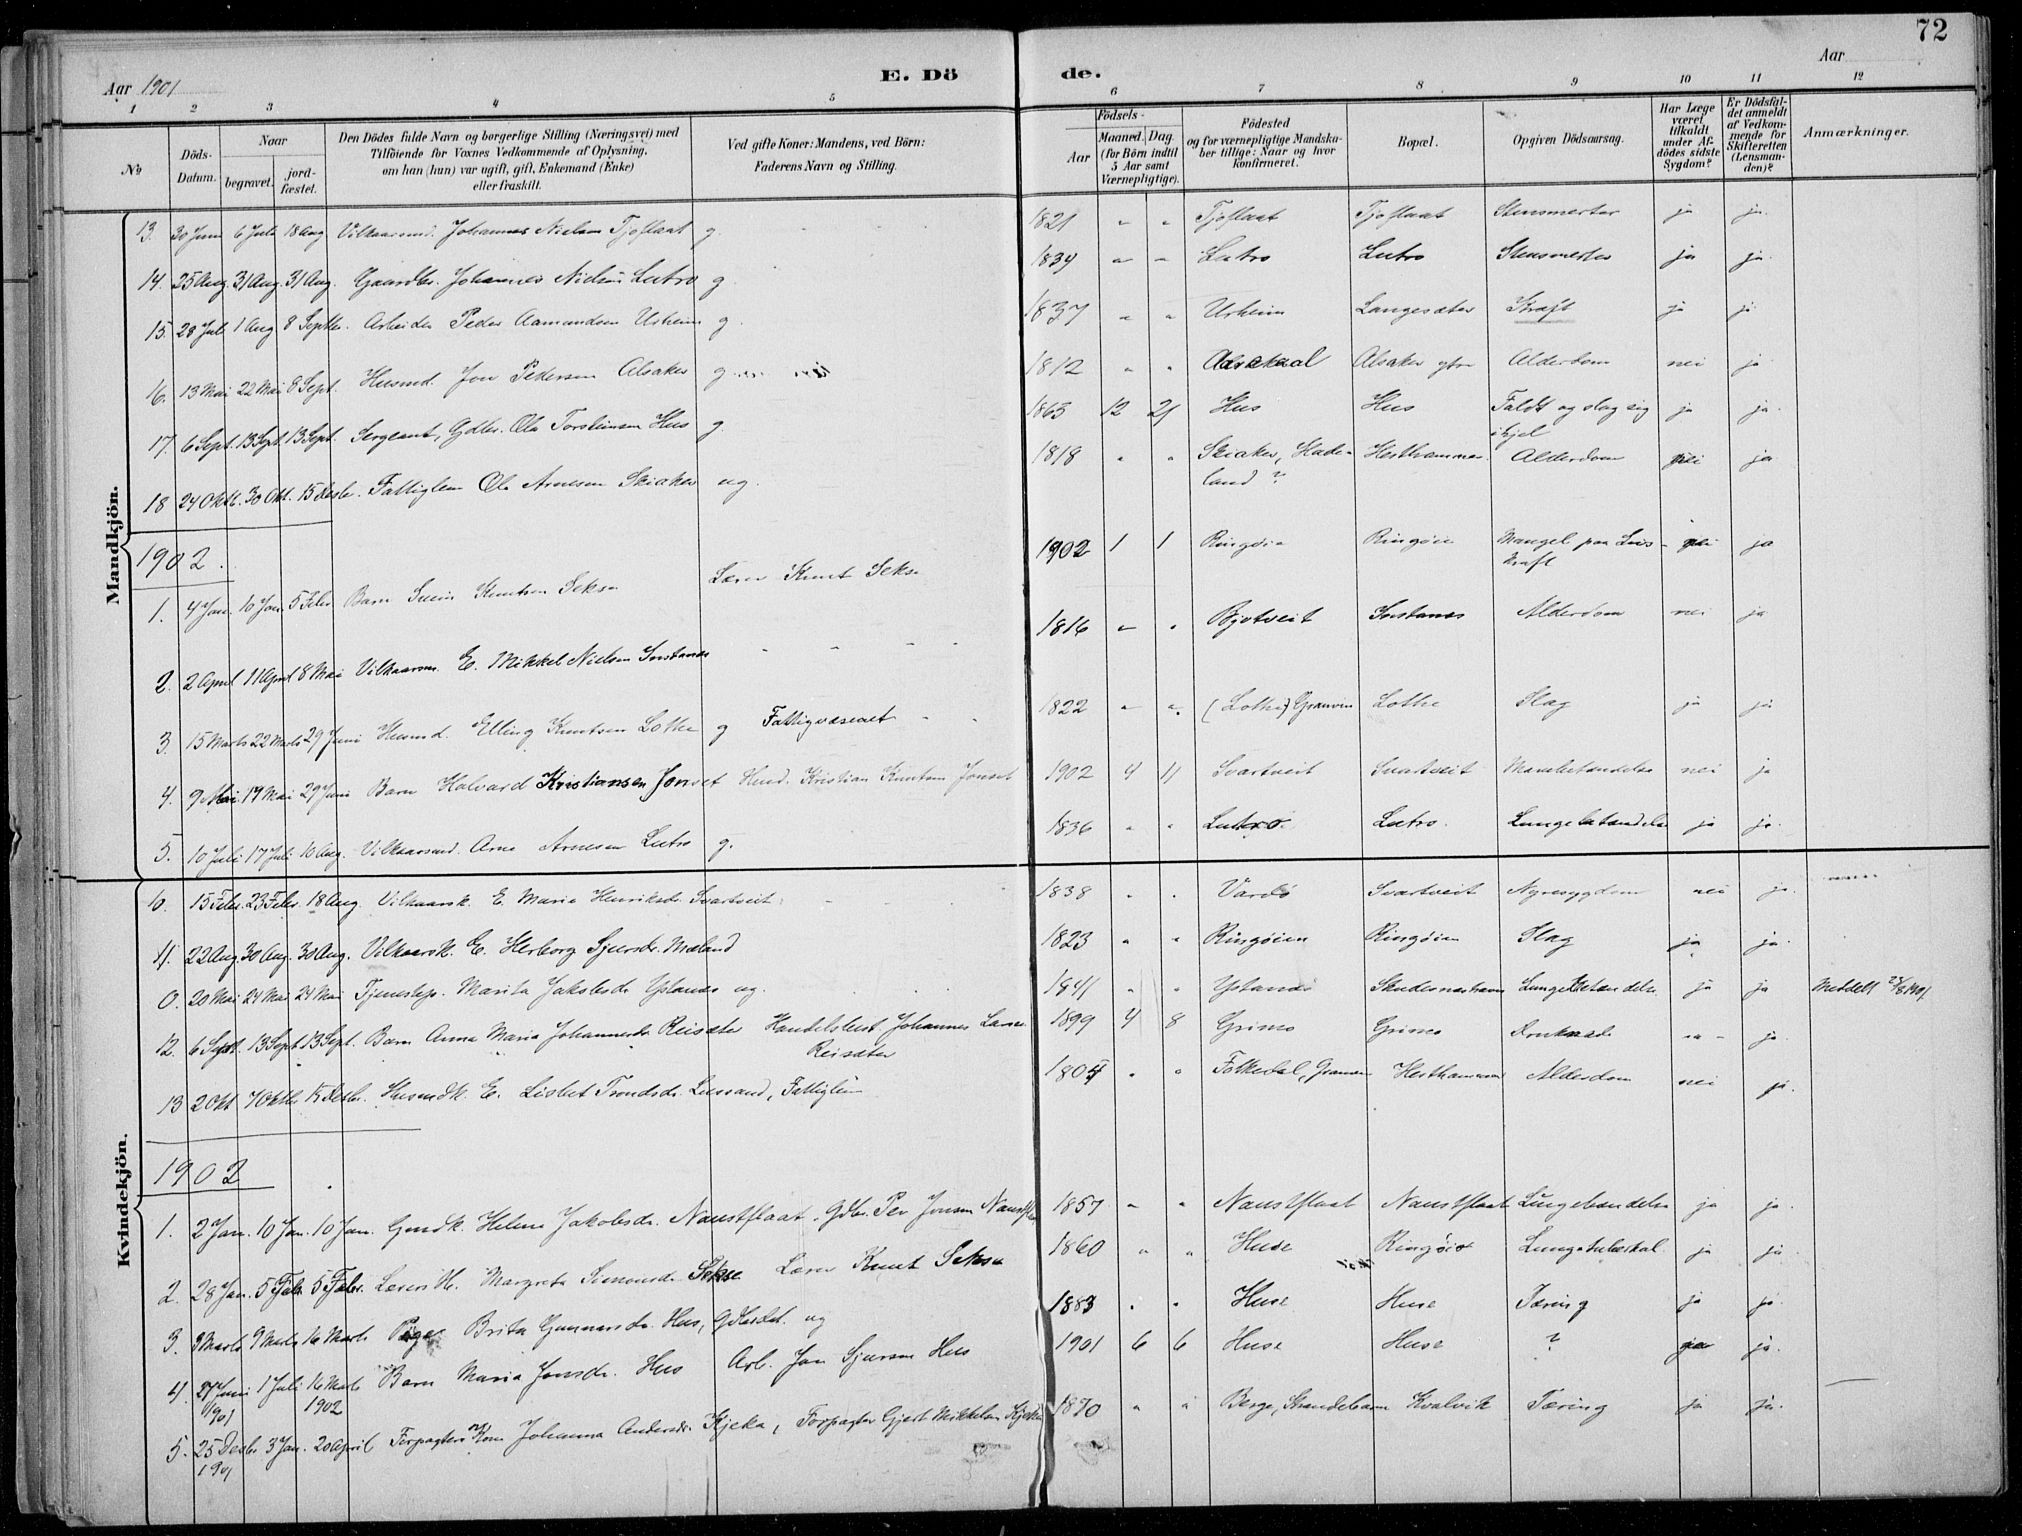 72
Aar 1901
E. Dö
de.
Aar
1 2 3 4 5 6 7 8 9 10 11 12
№
Döds-Datum.
Naar
begravet.
jord-fæstet.
Den Dödes fulde Navn og borgerlige Stilling (Næringsvei) med
Tilföiende for Voxnes Vedkommende af Oplysning,
om han (hun) var ugift, gift, Enkemand (Enke)
eller fraskilt.
Ved gifte Koner: Mandens, ved Börn:
Faderens Navn og Stilling.
Födsels-
Aar
Maaned. Dag.
(for Börn indtil
5 Aar samt
Værnepligtige).
Födested
og for værnepligtige Mandska-
ber tillige: Naar og hvor
konfirmeret.
Bopæl.
Opgiven Dödsaarsag.
Har Læge
været
tilkaldt
under Af-
dödes sidste
Sygdom?
Er Dödsfal-
det anmeldt
af Vedkom-
mende for
Skifteretten
(Lensman-
den)?
Anmærkninger.
Mandkjön.
13. 30 Juni 6 Juli 18 Aug Vilkaarsmd. Johannes Nielsen Tjoflaat g. 1821 " " Tjoflaat Tjoflaat Stensmerter ja ja.
14. 25 Aug. 31 Aug. 31 Aug. Gaardbr. Johannes Nielsen Lutro g 1834 " " Lutro Lutro Stensmerter ja ja.
15. 28 Juli 1 Aug 8 Septbr. Arbeider Peder Aamundsen Urheim g. 1837 " " Urheim Langesæter Kræft ja ja.
16. 13 Mai 22 Mai 8 Sept. Husmd. Jon Pedersen Alsaker g. 1812 " " Alsaker Alderdom nei ja
17. 6 Sept. 13 Sept. 13 Sept. Sergeant, Gdbr. Ola Torsteinsen Hus g 1865 12 21 Hus Hus Faldt og slog sig ihjel ja ja.
18 24 Oktb. 30 Okt. 15 Desbr. Fattiglem Ole Arnesen Skiaker ug. 1818 " " Skiaker, Hade-land? Hesthammer Alderdom nei ja
1902.
1. 4 Jan. 10 Jan. 5 Febr. Barn Svein Knutsen Sekse Lærer Knut Sekse 1902 1 1 Ringøin Ringøin Mangel paa Livs-kraft nei ja
2. 2 April 11 April 8 Mai Vilkaarsm. E. Mikkel Nielsen Instanes " " " 1816 " " Bjotveit Instanes Alderdom nei ja
3. 15 Marts 22 Marts 29 Juni Husmd. Elling Knutsen Lothe g Fattigvæsenet " " 1822 " " (Lothe) Granvin Lothe Slag ja ja
4. 9 Mai 19 Mai 29 Juni Barn Halvard Kristiansen Jonset Husmd. Kristian Knutsen Jonset 1902 4 11 Svartveit Svartveit nei ja
5. 10 Juli 17 Juli 10 Aug. Vilkaarsmd. Arne Arnesen Lutro g. 1836 " " Lutro. Lutro. Lungebetændelse ja ja.
Kvindekjön.
10. 15 Febr. 23 Febr. 18 Aug. Vilkaarsk. E. Maria Henriksdr. Svartveit 1838 " " Vardö Svartveit Nyresygdom nei ja.
11. 22 Aug. 30 Aug. 30 Aug. Vilkaarsk. E. Herborg Sjursdr. Mæland 1823 " " Ringøien Ringøien Slag ja ja.
0. 20 Mai 24 Mai 24 Mai Tjenestep. Marita Jakobsdr. Ystanes ug. 1841 " " Ystanes Skudesneshavn Lungebetændelse ja ja Meddelt 23/8 1901
12. 6 Sept. 13 Sept. 13 Sept. Barn Anna Maria Johannesdr. Reisæter Handelsbest. Johannes Larsen Reisæter 1899 4 8 Grimo Grimo Druknede " ja.
13 2 Okt 7 Oktbr. 15 Desbr. Husmdk. E. Lisbet Trondsdr. Lussand, Fattiglem 1804 " " Folkedal, Granvin Hesthammer Alderdom nei ja.
1902
1. 2 Jan. 10 Jan. 10 Jan. Gmdk. Helena Jakobsdr. Naustflaat. Gdbr. Per Jonsen 1857 " " Naustflaat Naustflaat Lungebetændelse ja ja.
2. 28 Jan. 5 Febr. 5 Febr. Lærers H. Margreta Simonsdr. Sekse Lærer Knut Sekse 1860 " " Huse Ringøin Lungetuberkul. ja ja.
3. 3 Marts 9 Marts 16 Marts Pige Brita Gunnarsdr. Hus, ug 1883 " " Huse Huse Tæring ja ja.
4. 27 Juni 1901 1 Juli 16 Marts 1902 Barn Maria Jonsdr. Hus Arb. Jon Sjursen Hus 1901 6 6 Huse Huse ? ja ja.
5. 25 Desbr. 1901 3 Jan. 20 April Forpagters Kone Johanna Andersdr. Kjeka, Forpagter Gjert Mikkelsen Kjeka 1870 " " Berge, Strandebarm Kvalvik Tæring ja ja.